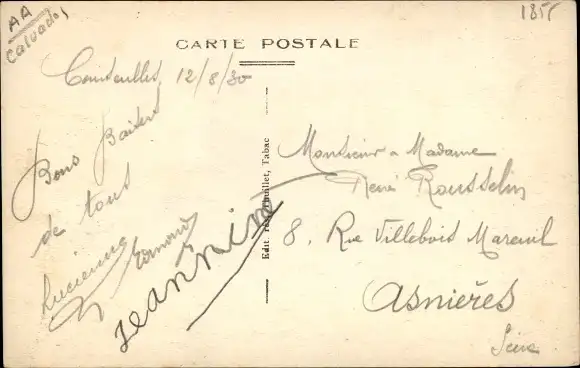 AA
Calvados
185
CARTE POSTALE
Courseulles, 12/8/30
Bons Baisers
de tous
Lucienne Edmond
Jeannine
Edit. Tabac
Monsieur & Madame
René Rousselin
8, Rue Villebois Mareuil
Asnières
Seine